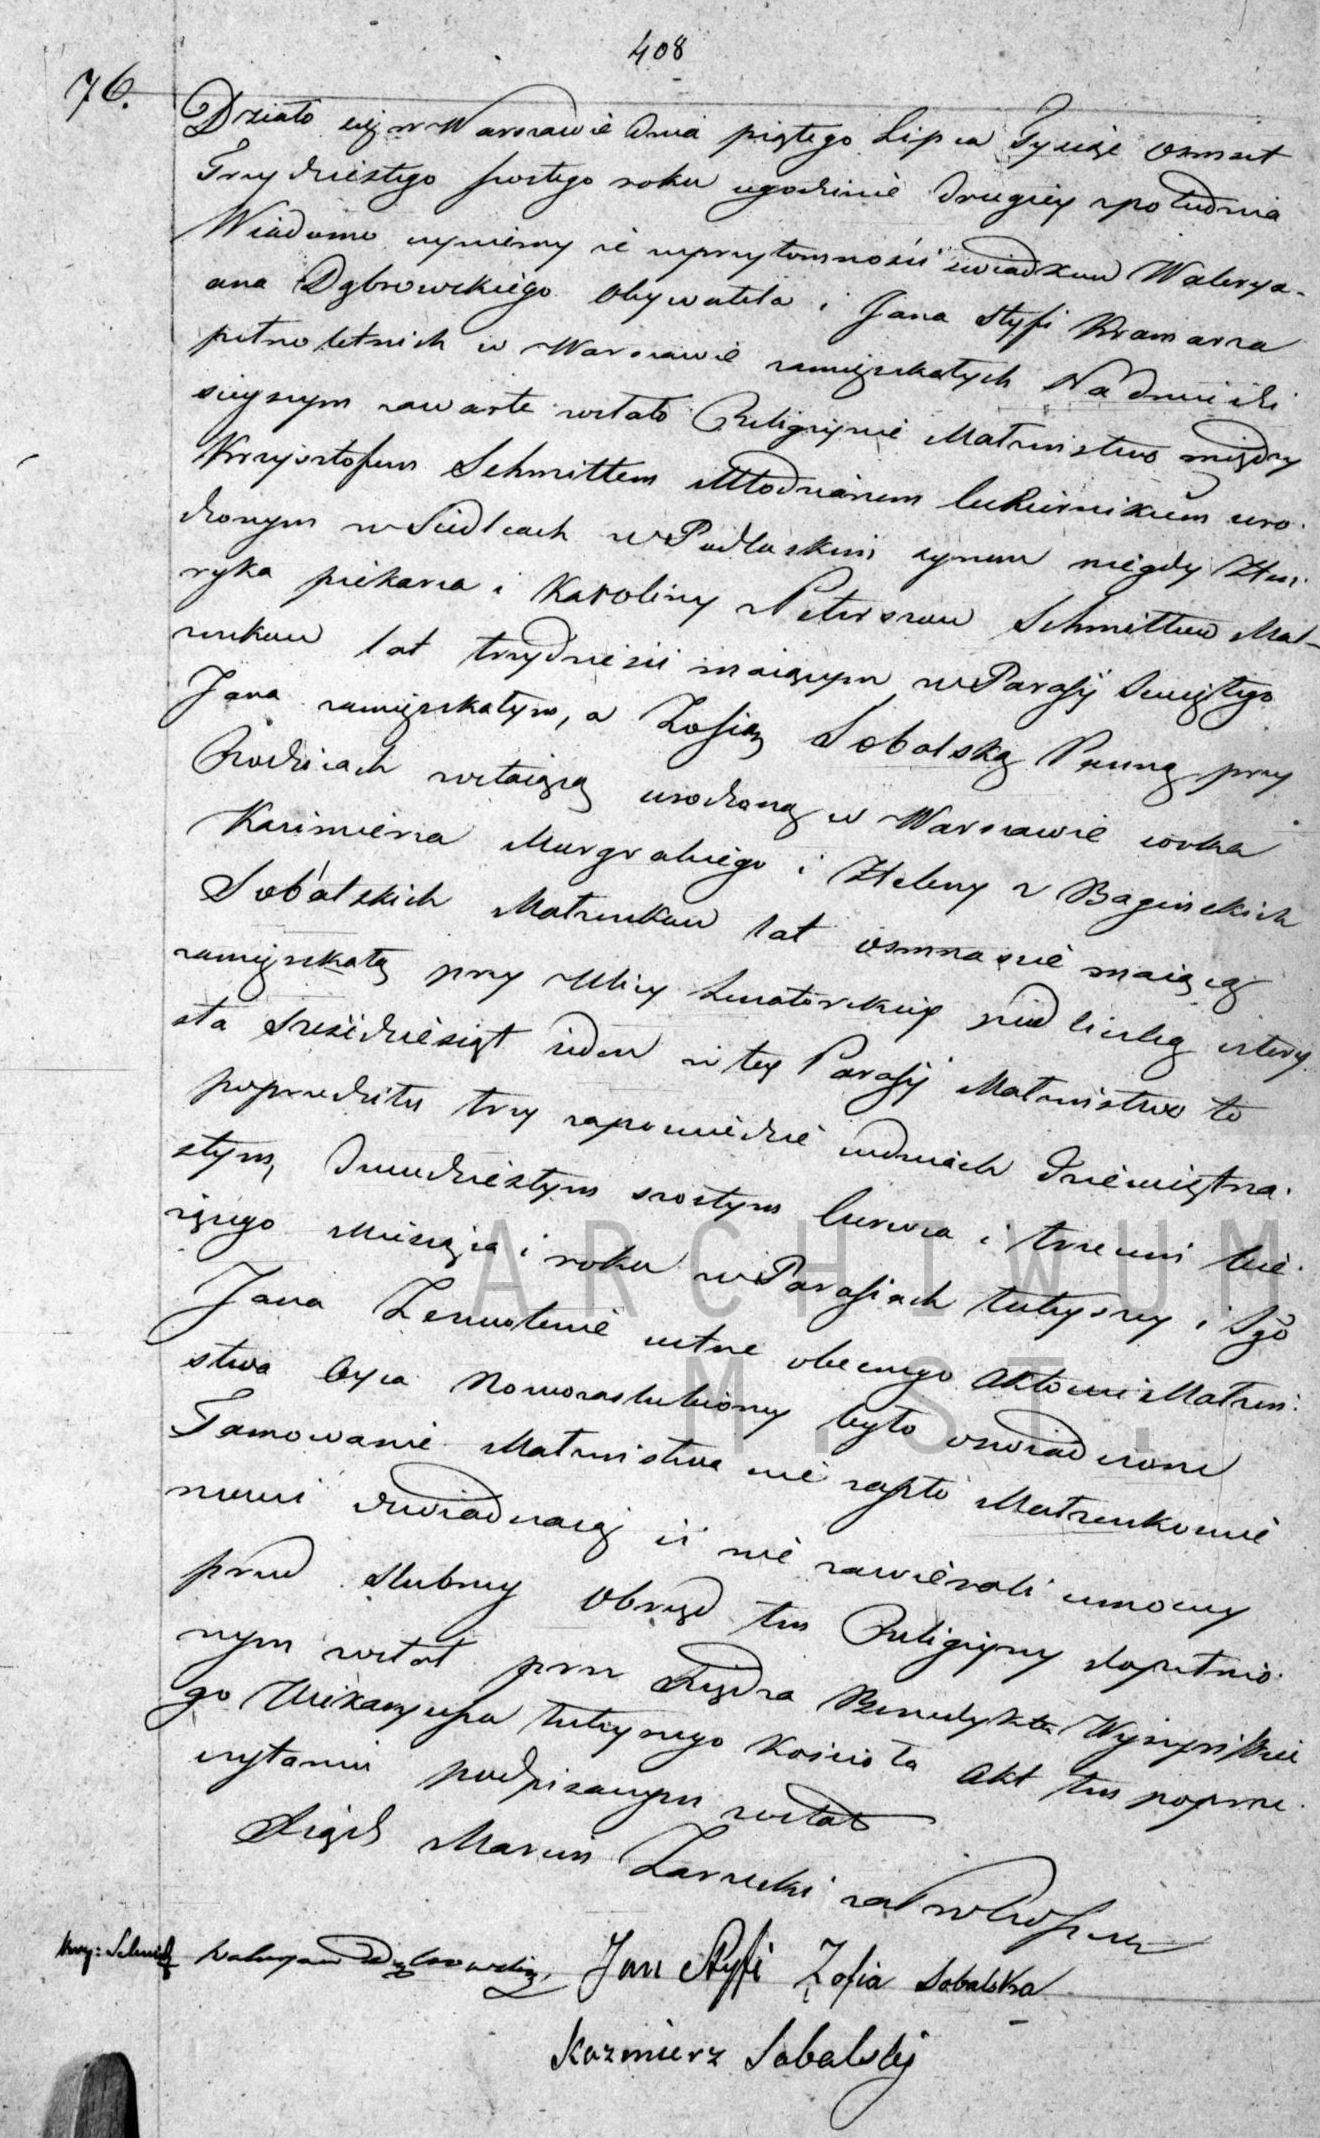 408
76.
Działo się w Warszawie dnia piątego Lipca Tysiąc osmset
Trzydziestego szostego roku o godzinie drugiey z południa
Wiadomo czyniemy że w przytomności świadkow Walerya-
ana Dąbrowskiego Obywatela i Jana Styfi Kramarza
pełnoletnich w Warszawie zamięszkałych Na dniu dzi
sieyszym zawarte zostało Religiyne Małżeństwo między
Krzysztofem Schmittem Młodzianem Cukiernikiem uro-
dzonym w Siedlcach w Podlaskim synem niegdy Hen-
ryka piekarza i Karoliny Schmittow Mał-
zonkow lat trzydzieści maiącym w Parafij Swiętego
Jana zamięszkałym, a Zofią Sobolską Panną przy
Rodzicach zostaiącą urodzoną w Warszawie corka
Kazimierza Murgrabiego i Heleny z Baginskich
Sobolskich Małzonkow lat osmnascie maiącą
zamięszkałą przy Ulicy Senatorskiey pod liczbą cztery
sta sześćdziesiąt ieden w tey Parafij Małzenstwo to
poprzedziły trzy zapowiedzie w dniach dziewiętna-
stym, dwudziestym szostym Czerwca i trzecim bie-
żącego Miesiąca i roku w Parafiach tuteyszey i Sgo
Jana Zezwolenie ustne obecnego Aktowi Małzen-
stwa Oyca Nowozaslubioney było oswiadczone
Tamowanie Małzenstwa nie zaszło Małzonkowie
nowi oswiadczaią iż nie zawierali umowy
przed slubney Obrzęd ten Religiyny dopełnio-
nym został przez Xiędza Benedykta
go Wikaryusza tuteyszego Kościoła Akt ten po prze-
czytaniu podpisanym został
Xiądz Marcin Zarzecki
Krzy: Schmidt Waleryan Dąbrowski, Jan Styfi Zofia Sobolska
Kazmierz Sobolski
ARCHIWUM
M. ST.